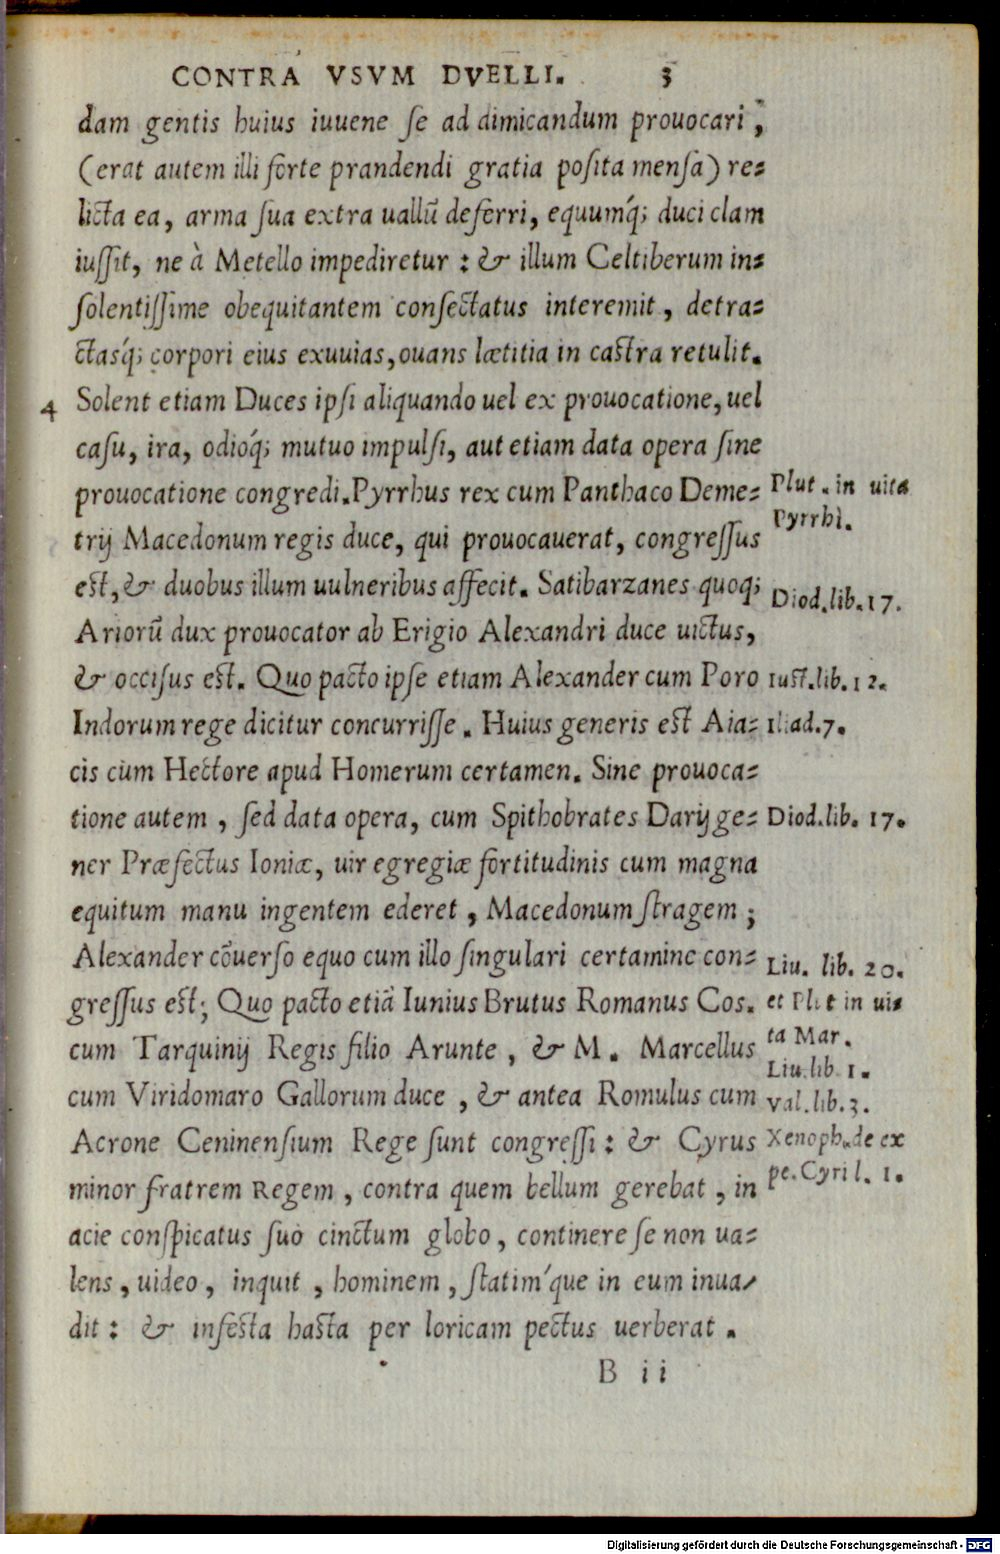 CONTRA VSVM DVELLI. 3
dam gentis huius iuuene se ad dimicandum prouocari,
(erat autem illi forte prandendi gratia posita mensa) re=
licta ea, arma sua extra uallũ deferri, equumq́; duci clam
iussit, ne à Metello impediretur: & illum Celtiberum in=
solentissime obequitantem consectatus interemit, detra=
ctasq́; corpori eius exuuias, ouans lætitia in castra retulit.
4 Solent etiam Duces ipsi aliquando uel ex prouocatione, uel
casu, ira, odioq́; mutuo impulsi, aut etiam data opera sine
prouocatione congredi. Pyrrhus rex cum Panthaco Deme=
Plut. in uita
Pyrrhi.
trij Macedonum regis duce, qui prouocauerat, congressus
est, & duobus illum uulneribus affecit. Satibarzanes quoq;
Diod. lib. 17.
Ariorũ dux prouocator ab Erigio Alexandri duce uictus,
& occisus est. Quo pacto ipse etiam Alexander cum Poro
Iust. lib. 12.
Indorum rege dicitur concurrisse. Huius generis est Aia=
Iliad. 7.
cis cum Hectore apud Homerum certamen. Sine prouoca=
tione autem, sed data opera, cum Spithobrates Darij ge=
Diod. lib. 17.
ner Præfectus Ioniæ, uir egregiæ fortitudinis cum magna
equitum manu ingentem ederet, Macedonum stragem;
Alexander cõuerso equo cum illo singulari certamine con=
Liu. lib. 20.
gressus est; Quo pacto etiã Iunius Brutus Romanus Cos.
et Plut in ui=
cum Tarquinij Regis filio Arunte, & M. Marcellus
ta Mar.
Liu. lib. 1.
cum Viridomaro Gallorum duce, & antea Romulus cum
Val. lib. 3.
Acrone Ceninensium Rege sunt congressi: & Cyrus
Xenoph. de ex
minor fratrem Regem, contra quem bellum gerebat, in
pe. Cyri l. 1.
acie conspicatus suo cinctum globo, continere se non ua=
lens, uideo, inquit, hominem, statim'que in eum inua-
dit: & infesta hasta per loricam pectus uerberat.
B ii
Digitalisierung gefördert durch die Deutsche Forschungsgemeinschaft - DFG